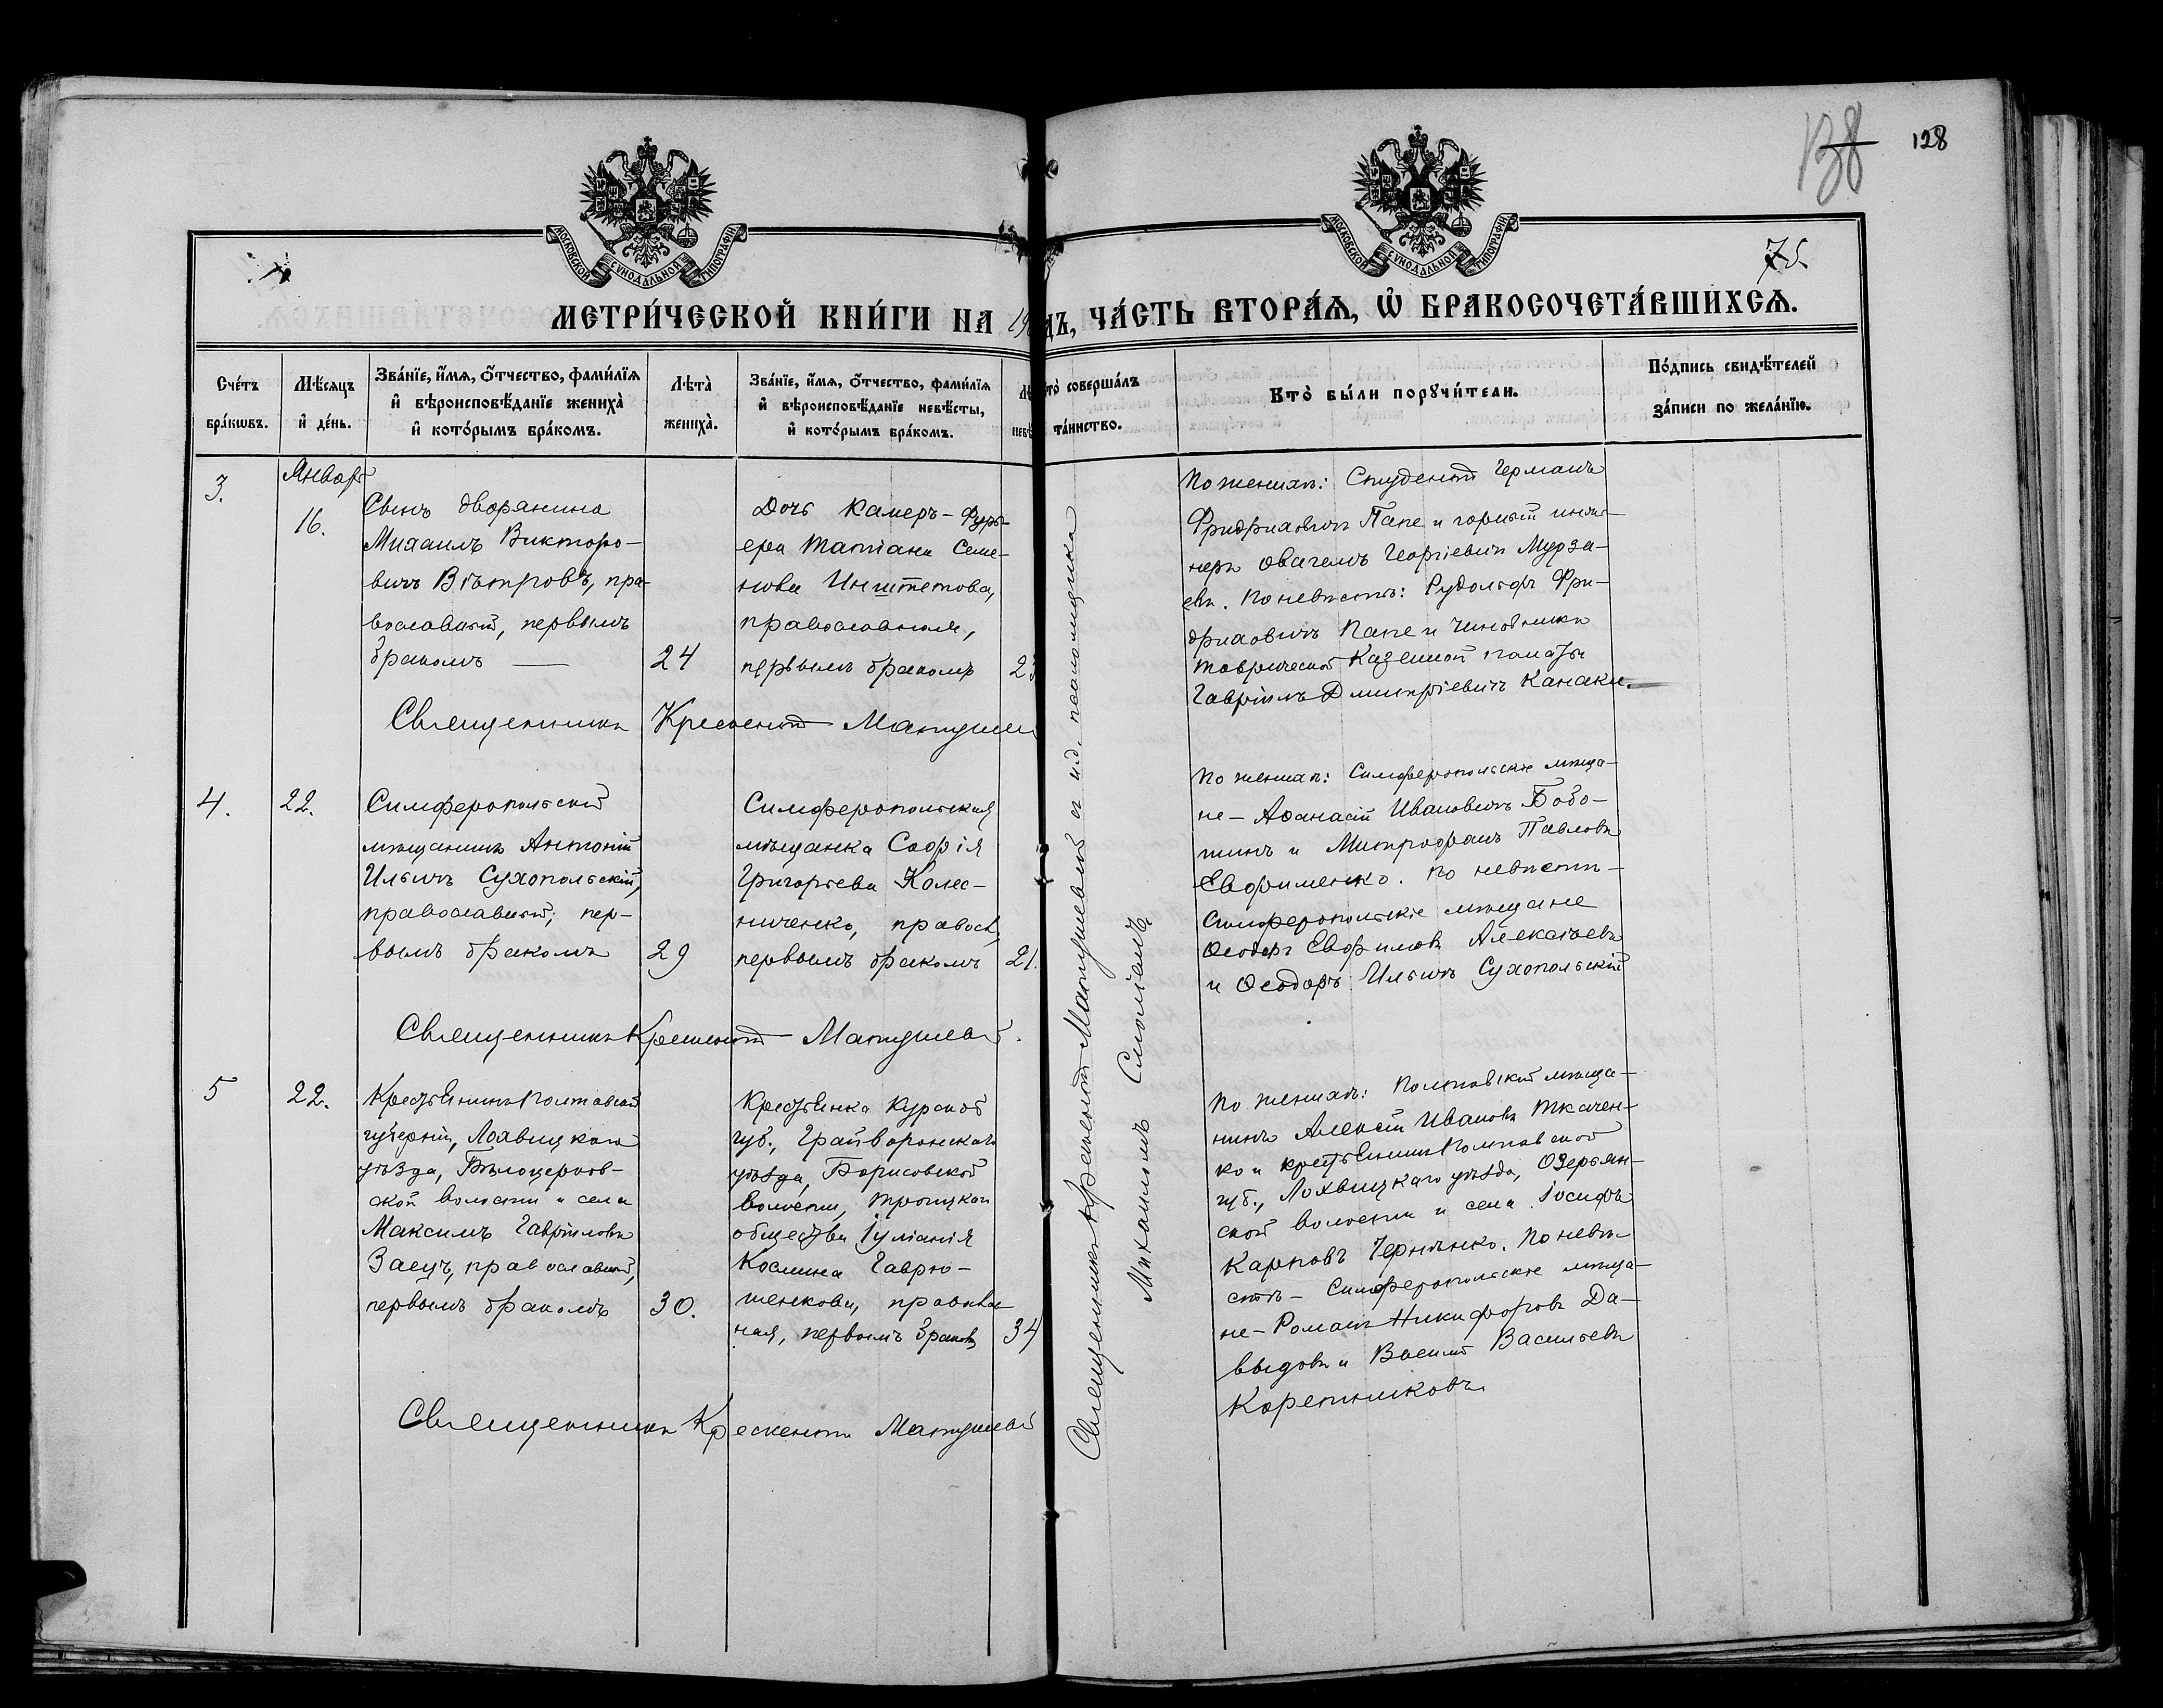 128
138
75.
МОСКОВСКОЙ СѴНОДАЛЬНОЙ ТИПОГРАФІИ
МОСКОВСКОЙ СѴНОДАЛЬНОЙ ТИПОГРАФІИ
МЕТРИ́ЧЕСКОЙ КНИ́ГИ НА 19
ДЪ, ЧА́СТЬ ВТОРА́Ѧ, Ѡ҆ БРАКОСОЧЕТА́ВШИХСѦ.
Сче́тъ бра́кѡвъ.
Мѣ́сяцъ и҆ де́нь.
Зва́нїе, и҆́мя, ѻ҆́тчество, фами́лїя и҆ вѣроисповѣ́данїе жениха̀ и҆ кото́рымъ бра́комъ.
Лѣта̀ жениха̀.
Зва́нїе, и҆́мя, ѻ҆́тчество, фами́лїя и҆ вѣроисповѣ́данїе невѣ́сты, и҆ кото́рымъ бра́комъ.
то̀ соверша́лъ та́инство.
Кто̀ бы́ли порꙋчи́тели.
По́дпись свидѣ́телей за́писи по жела́нїю.
3.
Январь
16.
Сынъ дворянина
Михаилъ Викторо-
вичъ Вѣтровъ, пра-
вославный, первымъ
бракомъ —
24
Дочь Камеръ-Фурь-
ера Татіана Семе-
нова Инштетова,
православная,
первымъ бракомъ
23
По женихѣ: Студентъ Германъ
Фридриховичъ Папе и горный инже-
неръ Георгіевич Мурза-
евъ. По невѣстѣ: Рудольфъ Фри-
дриховичъ Папе и чиновникъ
Таврической Казенной палаты
Гавріилъ Дмитріевичъ Канаки.
Священникъ Крескентъ Матушев
4.
22.
Симферопольскій
мѣщанинъ Антоній
Ильичъ Сухопольскій,
православный, пер-
вымъ бракомъ
29
Симферопольская
мѣщанка Софія
Григорьева Колес-
ниченко, правосл.,
первымъ бракомъ
21.
По женихѣ: Симферопольскіе мѣща-
не - Аѳанасій Ивановичъ Бобо-
шинъ и Митрофанъ Павловъ
Евфименко. По невѣстѣ -
Симферопольскіе мѣщане
Ѳеодоръ Евфимовъ Алексѣевъ
и Ѳеодоръ Ильичъ Сухопольскій
Священникъ Крескентъ Матушевъ.
5
22.
Крестьянинъ Полтавской
губерніи, Лохвицкаго
уѣзда, Бѣлоцерков-
ской волости и села
Максимъ Гавріиловъ
Заецъ, православный,
первымъ бракомъ
30.
Крестьянка Курской
губ., Грайворонскаго
уѣзда, Борисовской
волости, Троицкаго
общества Іуліанія
Косьмина Гаврю-
шенкова, православ-
ная, первымъ бракомъ
34
По женихѣ: Полтавскій мѣща-
нинъ Алексій Ивановъ Ткачен-
ко и крестьянинъ Полтавской
губ., Лохвицкаго уѣзда, Озерян-
ской волости и села Іосифъ
Карповъ Чернѣнко. По невѣ-
стѣ - Симферопольскіе мѣща-
не - Романъ Никифоровъ Да-
выдовъ и Василій Васильевъ
Коретниковъ.
Священникъ Крескентъ Матушевъ
Священникъ Крескентъ Матушевъ съ и.д. псаломщика
Михаиломъ